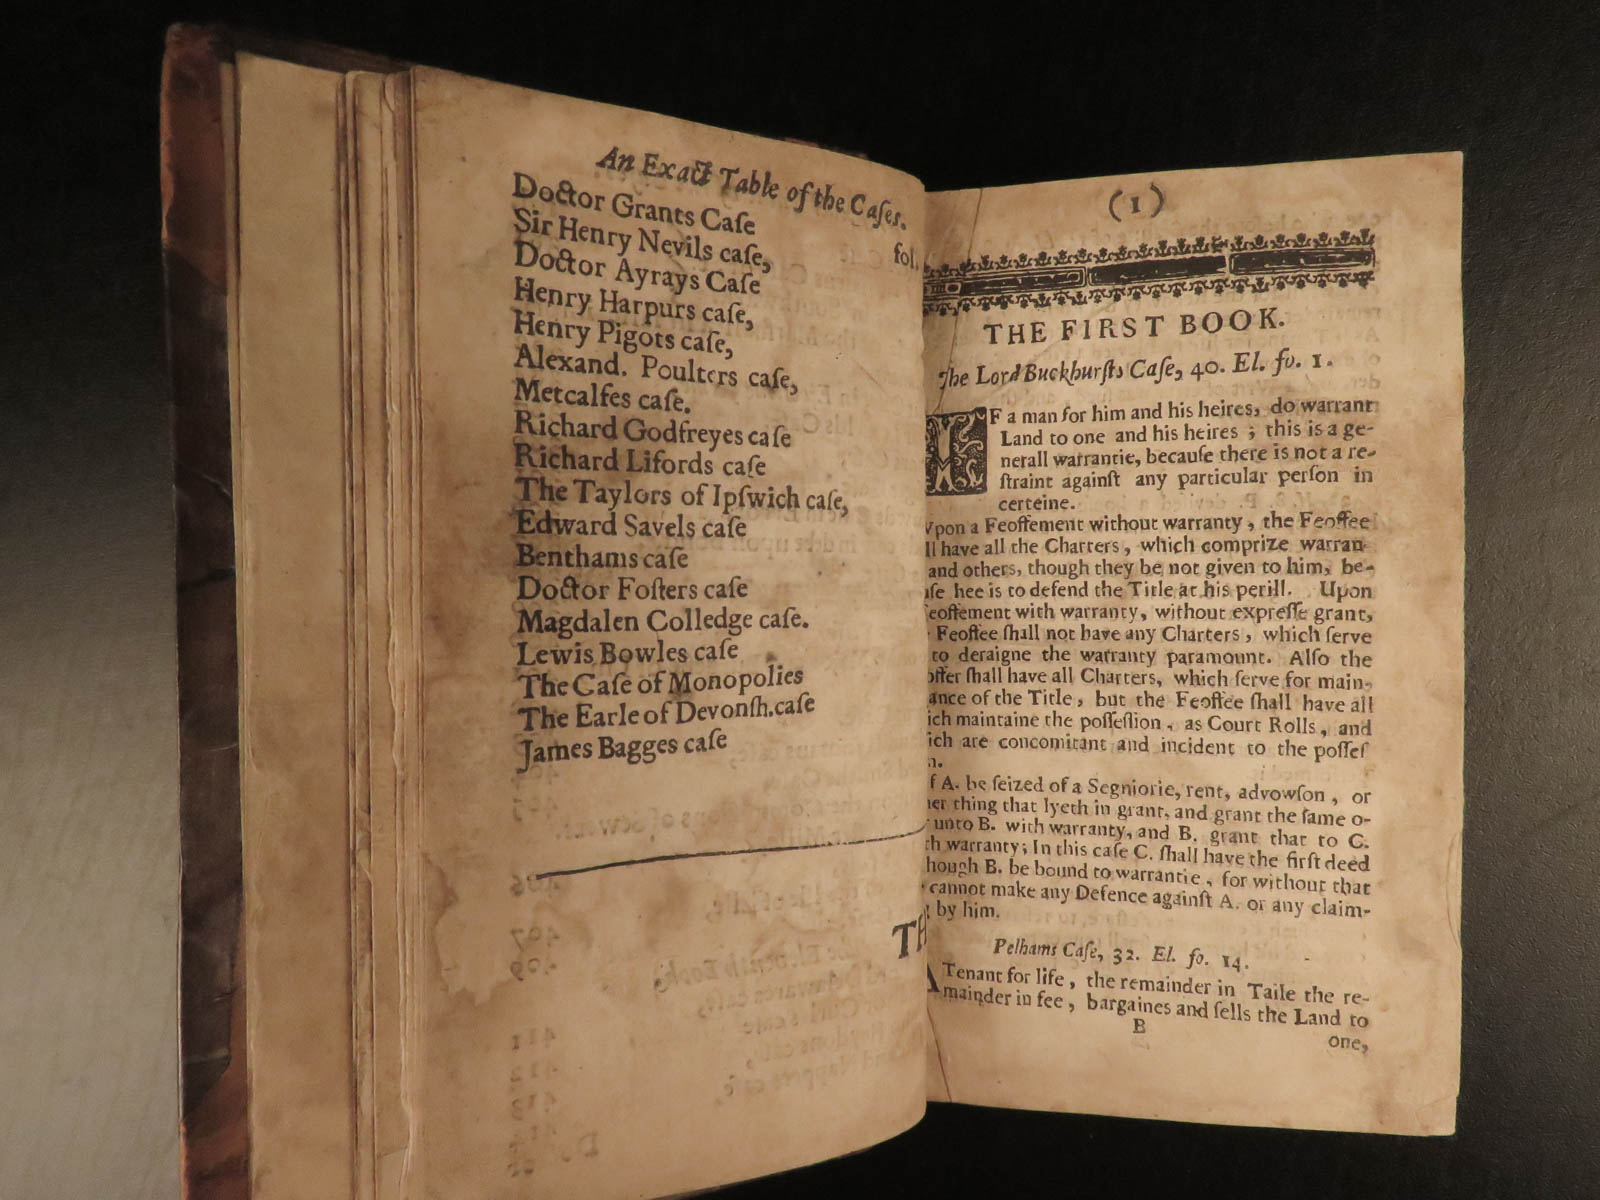 An Exact Table of the Caſes.
fol.
Doctor Grants Caſe
Sir Henry Nevils caſe,
Doctor Ayrays Caſe
Henry Harpurs caſe,
Henry Pigots caſe,
Alexand. Poulters caſe,
Metcalfes caſe.
Richard Godfreyes caſe
Richard Lifords caſe
The Taylors of Ipſwich caſe,
Edward Savels caſe
Benthams caſe
Doctor Foſters caſe
Magdalen Colledge caſe.
Lewis Bowles caſe
The Caſe of Monopolies
The Earle of Devonſh.caſe
James Bagges caſe
TH
(1)
THE FIRST BOOK.
The Lord Buckhurſts Caſe, 40. El. fo. 1.
IF a man for him and his heires, do warrant
Land to one and his heires; this is a ge-
nerall warrantie, becauſe there is not a re-
ſtraint againſt any particular perſon in
certeine.
Upon a Feoffement without warranty, the Feoffee
ll have all the Charters, which comprize warran-
and others, though they be not given to him, be-
uſe hee is to defend the Title at his perill. Upon
eoffement with warranty, without expreſſe grant,
Feoffee ſhall not have any Charters, which ſerve
to deraigne the warranty paramount. Alſo the
offer ſhall have all Charters, which ſerve for main-
ance of the Title, but the Feoffee ſhall have all
ich maintaine the poſſeſſion, as Court Rolls, and
ich are concomitant and incident to the poſſeſ
n.
f A. be ſeized of a Segniorie, rent, advowſon, or
her thing that lyeth in grant, and grant the ſame o-
unto B. with warranty, and B. grant that to C.
th warranty; In this caſe C. ſhall have the firſt deed
hough B. be bound to warrantie, for without that
cannot make any Defence againſt A. or any claim-
by him.
Pelhams Caſe, 32. El. fo. 14.
A Tenant for life, the remainder in Taile the re-
mainder in fee, bargaines and ſells the Land to
B
one,